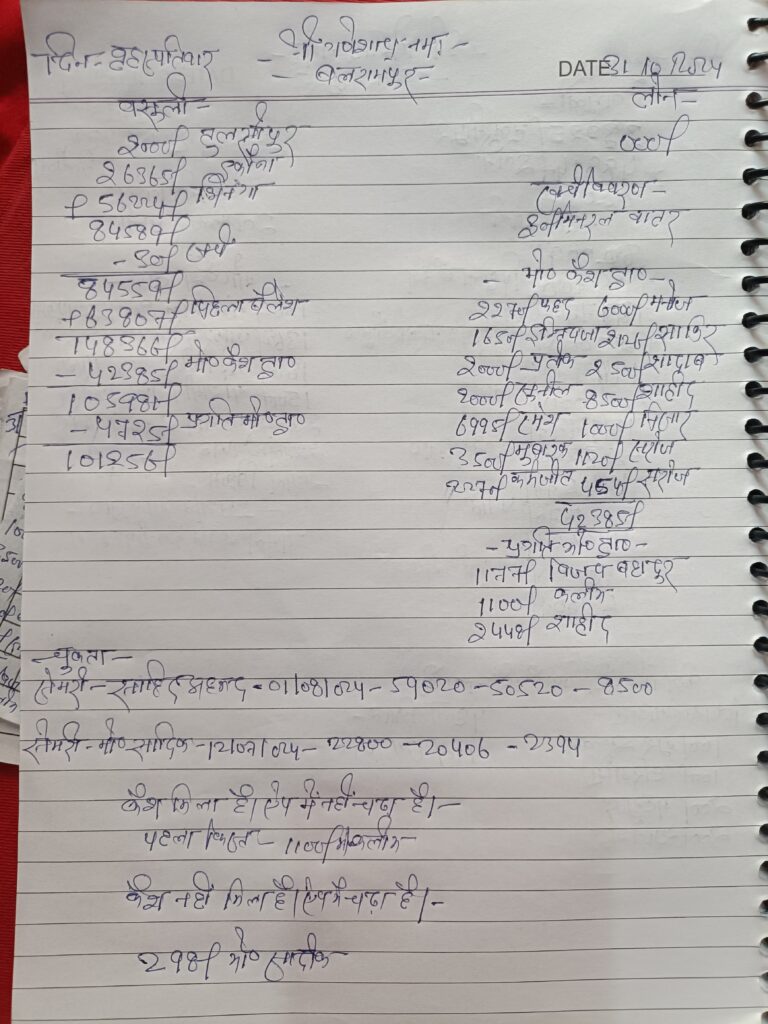 दिन - बृहस्पतिवार
- श्री गणेशाय नमः -
- बलरामपुर -
DATE 31 10 2024
वसूली -
2000/ तुलसीपुर
26365/
+ 56224/ भिनगा
84589/
- 30/ खर्च
84559/
+ 63807/ पिछला बैलेंस
148366/
- 42385/ मो० कैश द्वा०
105981/
- 4725/ प्रगति मो० द्वा०
101256/
लोन -
000/
खर्च विवरण -
30/ मिनरल वाटर
- मो० कैश द्वा० -
227/ फहद 6000/ मनोज
1650/ 2126/ शाकिर
2000/ प्रतीक 2500/ शादाब
2000/ सुनील 8500/ शाहीद
6995/ रमेश 1000/ निसार
3500/ मुबारक 1120/ सरोज
227/ 454/ सरोज
42385/
- प्रगति मो० द्वा० -
1177/ विजय बहादुर
1100/ कलीम
2448/ शाहीद
- चुकता -
सेमरी - साहिद अहमद - 01/08/024 - 59020 - 50520 - 8500
सेमरी - मो० सादिक - 12/07/024 - 22800 - 20406 - 2394
कैश मिला है। ऐप में नहीं चढ़ा है। -
पहला किस्त - 1100/ मो० कलीम
कैश नहीं मिला है। ऐप में चढ़ा है। -
298/ मो० सादीक